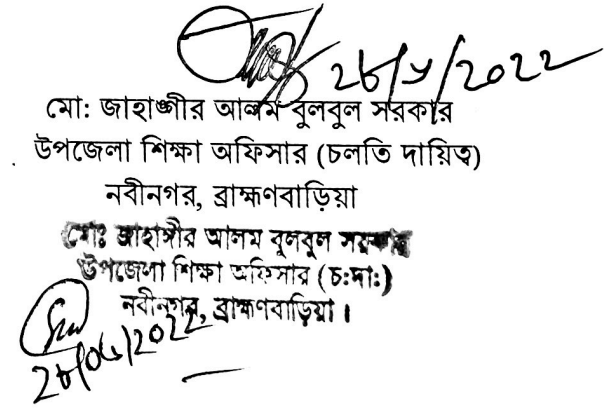 মো: জাহাঙ্গীর আলম বুলবুল সরকার
উপজেলা শিক্ষা অফিসার (চলতি দায়িত্ব)
নবীনগর, ব্রাহ্মণবাড়িয়া
মোঃ জাহাঙ্গীর আলম বুলবুল সরকার
উপজেলা শিক্ষা অফিসার (চ:দা:)
নবীনগর, ব্রাহ্মণবাড়িয়া।